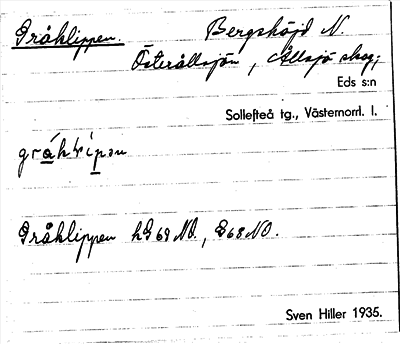 Gråklippen. Bergshöjd N.
Österållsjön, Ållsjö skog,
Eds s:n
Sollefteå tg., Västernorrl. l.
Gråklippen hG68 NO., G68 NO.
Sven Hiller 1935.